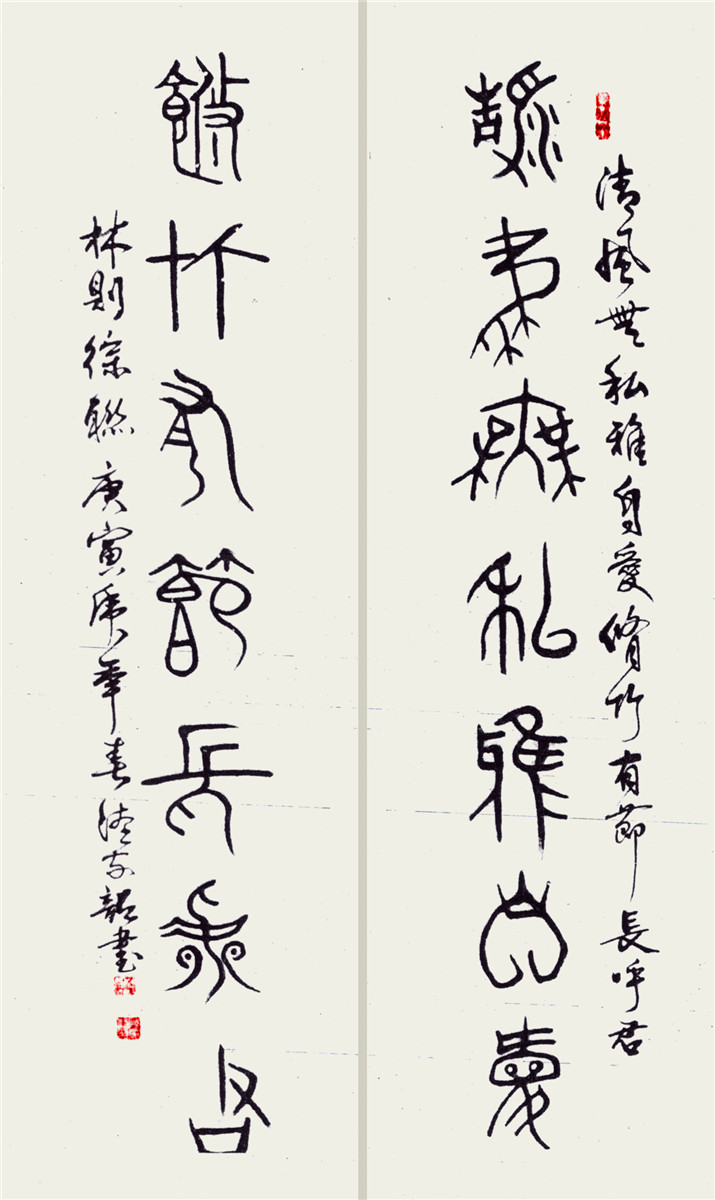 清風無私雅自愛脩竹有節長呼君
清風無私雅自愛
脩竹有節長呼君
林則徐聯庚寅虎年春陸韶書